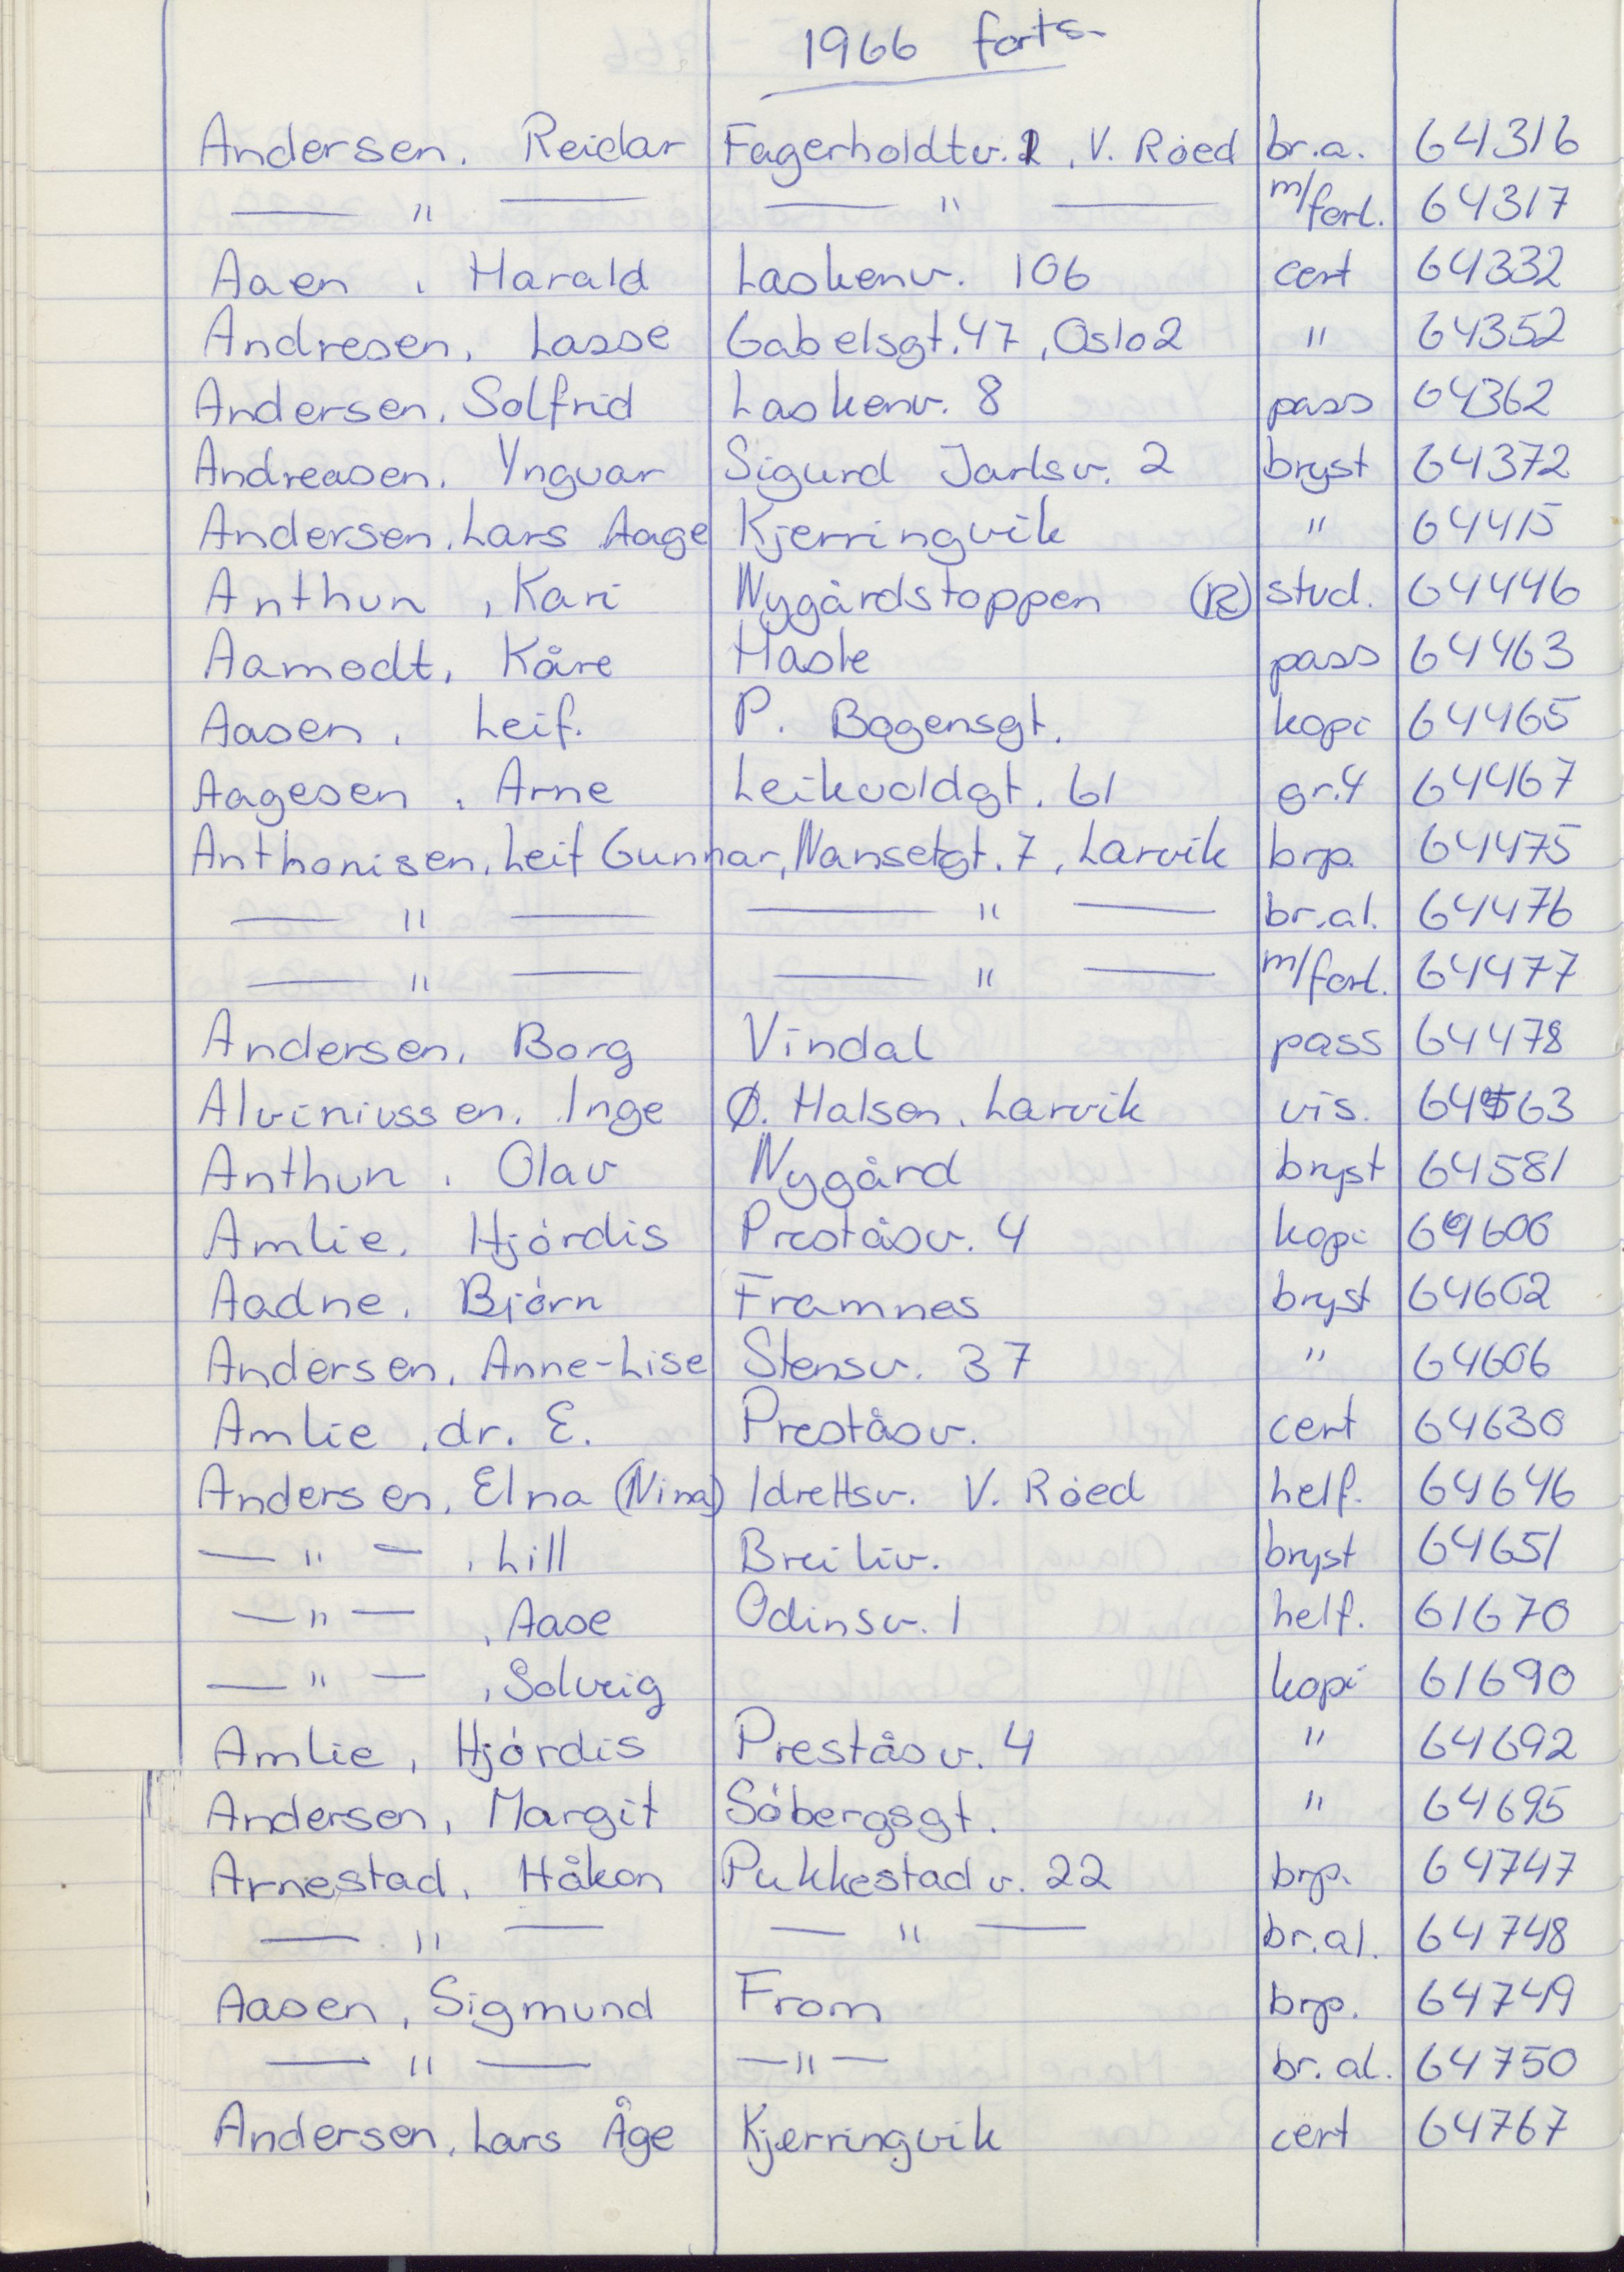 1966 forts.
Andersen, Reidar Fagerholdtv. 2, V. Röed br.a. 64316
— " — — " — m/forl. 64317
Aaen, Harald Laskenv. 106 cert 64332
Andresen, Lasse Gabelsgt. 47, Oslo 2 " 64352
Andersen, Solfrid Laskenv. 8 pass 64362
Andreasen, Yngvar Sigurd Jarlsv. 2 bryst 64372
Andersen, Lars Aage Kjerringvik " 64415
Anthun, Kari Nygårdstoppen (R) stud. 64446
Aamodt, Kåre Hasle pass 64463
Aasen, Leif. P. Bogensgt. kopi 64465
Aagesen, Arne Leikvoldgt. 61 gr.4 64467
Anthonisen, Leif Gunnar, Nansetgt. 7, Larvik brp. 64475
— " — — " — br.al. 64476
— " — — " — m/forl. 64477
Andersen, Borg Vindal pass 64478
Alviniussen, Inge Ø. Halsen, Larvik vis. 64563
Anthun, Olav Nygård bryst 64581
Amlie, Hjördis Preståsv. 4 kopi 64600
Aadne, Björn Framnes bryst 64602
Andersen, Anne-Lise Stensv. 37 " 64606
Amlie, dr. E. Preståsv. cert 64630
Andersen, Elna (Nina) Idrettsv. V. Röed helf. 64646
— " — , Lill Breiliv. bryst 64651
— " — , Aase Odinsv. 1 helf. 61670
— " — , Solveig kopi 61690
Amlie, Hjördis Preståsv. 4 " 64692
Andersen, Margit Söbergsgt. " 64695
Arnestad, Håkon Pukkestadv. 22 brp. 64747
— " — — " — br.al. 64748
Aasen, Sigmund Fram brp. 64749
— " — — " — br.al. 64750
Andersen, Lars Åge Kjerringvik cert 64767